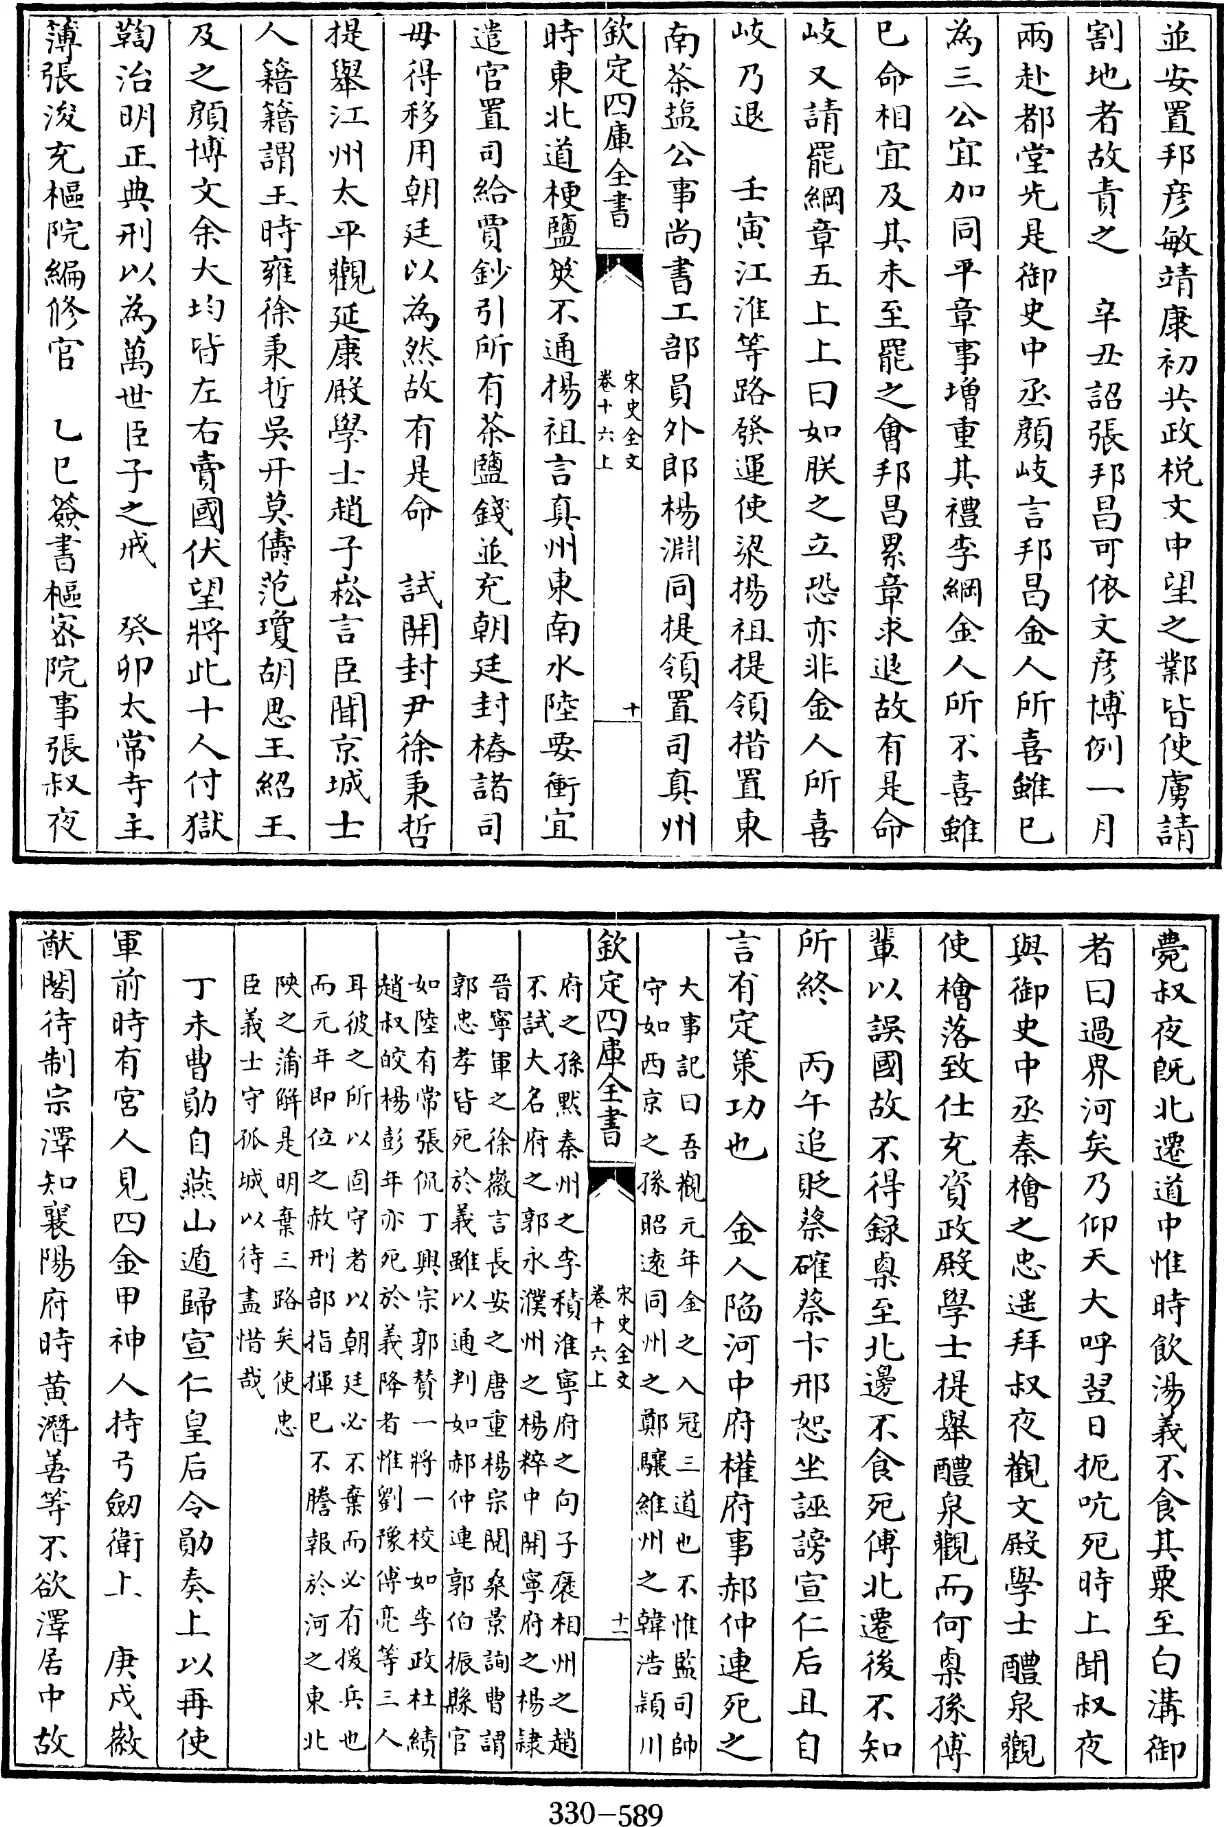 並安置邦彦敏靖康初共政梲文中望之鄴皆使虜請
割地者故責之　辛丑詔張邦昌可依文彦博例一月
兩赴都堂先是御史中丞顔岐言邦昌金人所喜雖已
為三公宜加同平章事增重其禮李綱金人所不喜雖
已命相宜及其未至罷之㑹邦昌累章求退故有是命
岐又請罷綱章五上上曰如朕之立恐亦非金人所喜
岐乃退　壬寅江淮等路發運使梁揚祖提領措置東
南茶鹽公事尚書工部員外郎楊淵同提領置司真州
欽定四庫全書
宋史全文
卷十六上
十
時東北道梗鹽筴不通揚祖言真州東南水陸要衝宜
遣官置司給賣鈔引所有茶鹽錢並充朝廷封樁諸司
毋得移用朝廷以為然故有是命　試開封尹徐秉哲
提舉江州太平觀延康殿學士趙子崧言臣聞京城士
人籍籍謂王時雍徐秉哲吳幵莫儔范瓊胡思王紹王
及之顔博文余大均皆左右賣國伏望將此十人付獄
鞫治明正典刑以為萬世臣子之戒　癸卯太常寺主
簿張浚充樞院編修官　乙巳簽書樞密院事張叔夜
薨叔夜既北遷道中惟時飲湯義不食其粟至白溝御
者曰過界河矣乃仰天大呼翌日扼吭死時上聞叔夜
與御史中丞秦檜之忠遥拜叔夜觀文殿學士醴泉觀
使檜落致仕充資政殿學士提舉醴泉觀而何㮚孫傅
輩以誤國故不得録㮚至北邊不食死傅北遷後不知
所終　丙午追貶蔡確蔡卞邢恕坐誣謗宣仁后且自
言有定策功也　金人陷河中府權府事郝仲連死之
大事記曰吾觀元年金之入冦三道也不惟監司帥
守如西京之孫昭逺同州之鄭驤維州之韓浩潁川
欽定四庫全書
宋史全文
卷十六上
十一
府之孫黙秦州之李積淮寧府之向子褒相州之趙
不試大名府之郭永濮州之楊粹中開寧府之楊隷
晉寧軍之徐徽言長安之唐重楊宗閔桑景詢曹謂
郭忠孝皆死於義雖以通判如郝仲連郭伯振縣官
如陸有常張侃丁興宗郭贊一將一校如李政杜績
趙叔皎楊彭年亦死於義降者惟劉豫傅亮等三人
耳彼之所以固守者以朝廷必不棄而必有援兵也
而元年即位之赦刑部指揮已不謄報於河之東北
陜之蒲解是明棄三路矣使忠
臣義士守孤城以待盡惜哉
丁未曹勛自燕山遁歸宣仁皇后令勛奏上以再使
軍前時有宮人見四金甲神人持弓劒衛上　庚戌徽
猷閣待制宗澤知襄陽府時黄潛善等不欲澤居中故
330-589